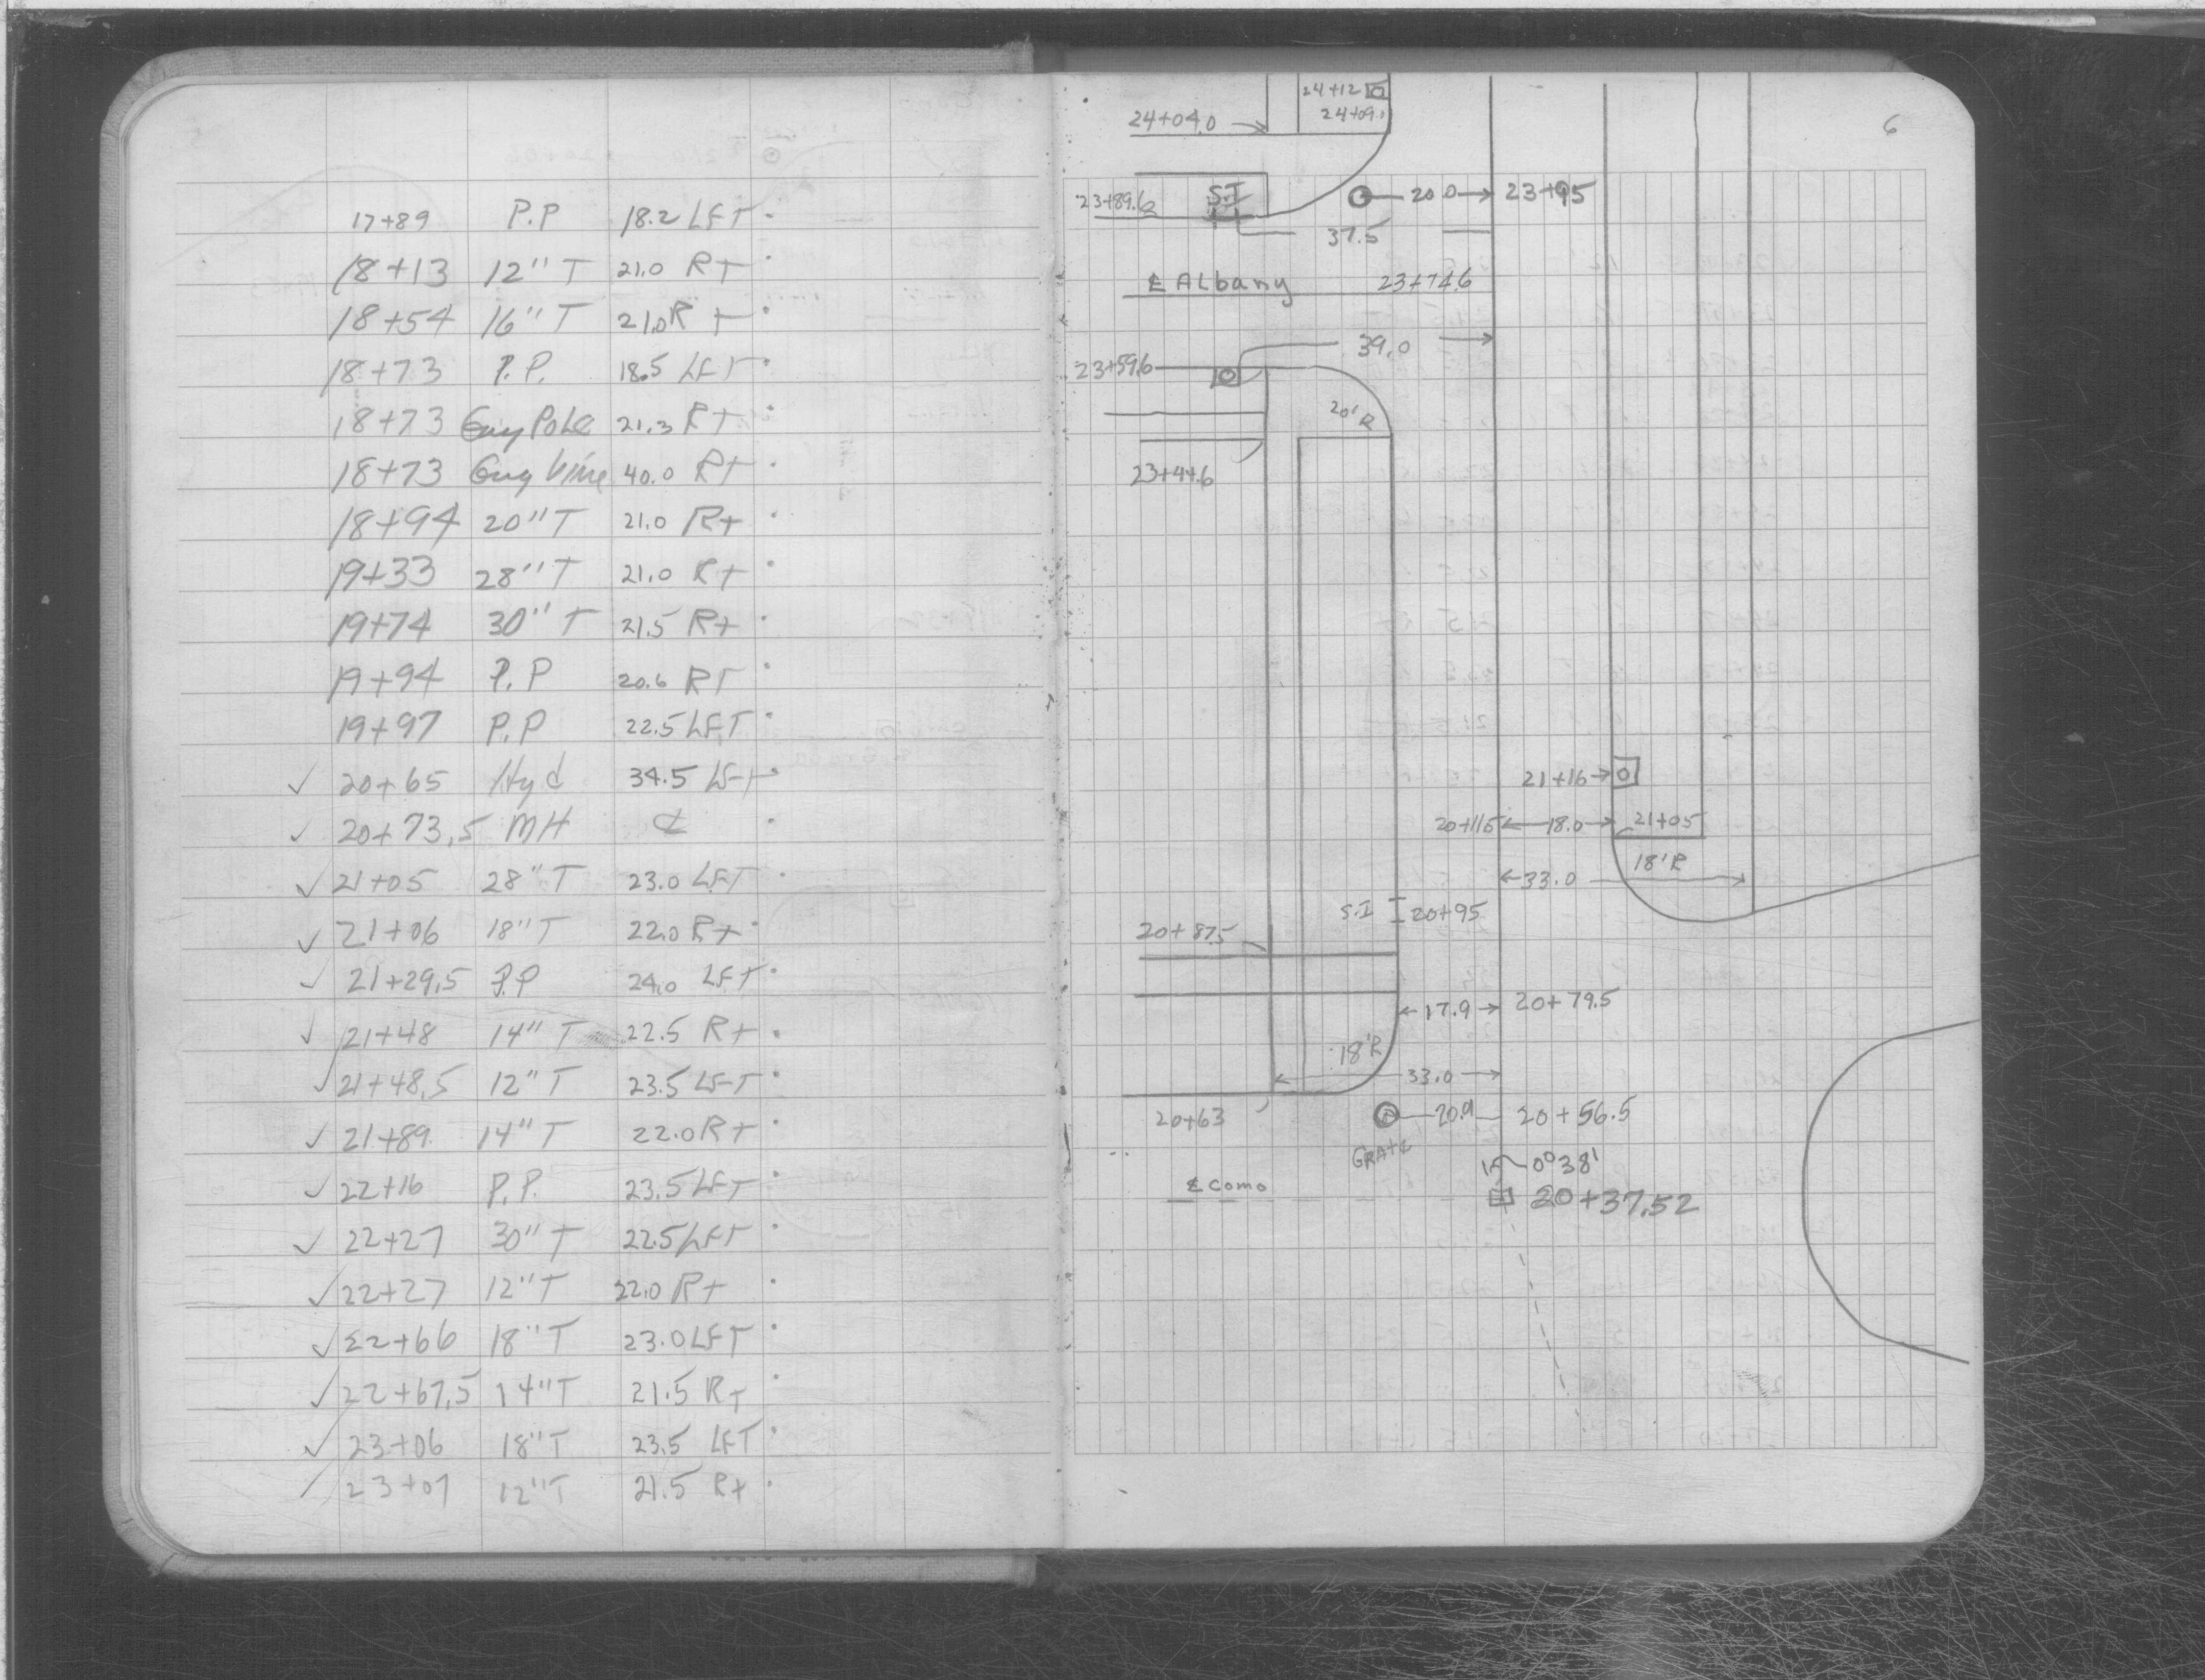 17+89 P.P 18.2 LFT
18+13 12" T 21.0 R+
18+54 16" T 21.0 R+
18+73 P.P. 18.5 LFT
18+73 Guy Pole 21.3 R+
18+73 Guy 40.0 R+
18+94 20" T 21.0 R+
19+33 28" T 21.0 R+
19+74 30" T 21.5 R+
19+94 P.P 20.6 RT
19+97 P.P 22.5 LFT
✓ 20+65 Hyd 34.5 LFT
✓ 20+73.5 MH ℄
✓ 21+05 28" T 23.0 LFT
✓ 21+06 18" T 22.0 R+
✓ 21+29.5 P.P 24.0 LFT
✓ 21+48 14" T 22.5 R+
✓ 21+48.5 12" T 23.5 LFT
✓ 21+89 14" T 22.0 R+
✓ 22+16 P.P. 23.5 LFT
✓ 22+27 30" T 22.5 LFT
✓ 22+27 12" T 22.0 R+
✓ 22+66 18" T 23.0 LFT
✓ 22+67.5 14" T 21.5 R+
✓ 23+06 18" T 23.5 LFT
✓ 23+07 12" T 21.5 R+
6
24+12
24+04.0 24+09.0
23+89.6 S.I 20.0 23+95
37.5
℄ Albany 23+74.6
39.0
23+59.6
20'R
23+44.6
21+16
20+115 18.0 21+05
18'R
33.0
S.I 20+95
20+87.5
17.9 20+79.5
18'R
33.0
20+63 20.0 20+56.5
GRATE
0°38'
℄ Como 20+37.52